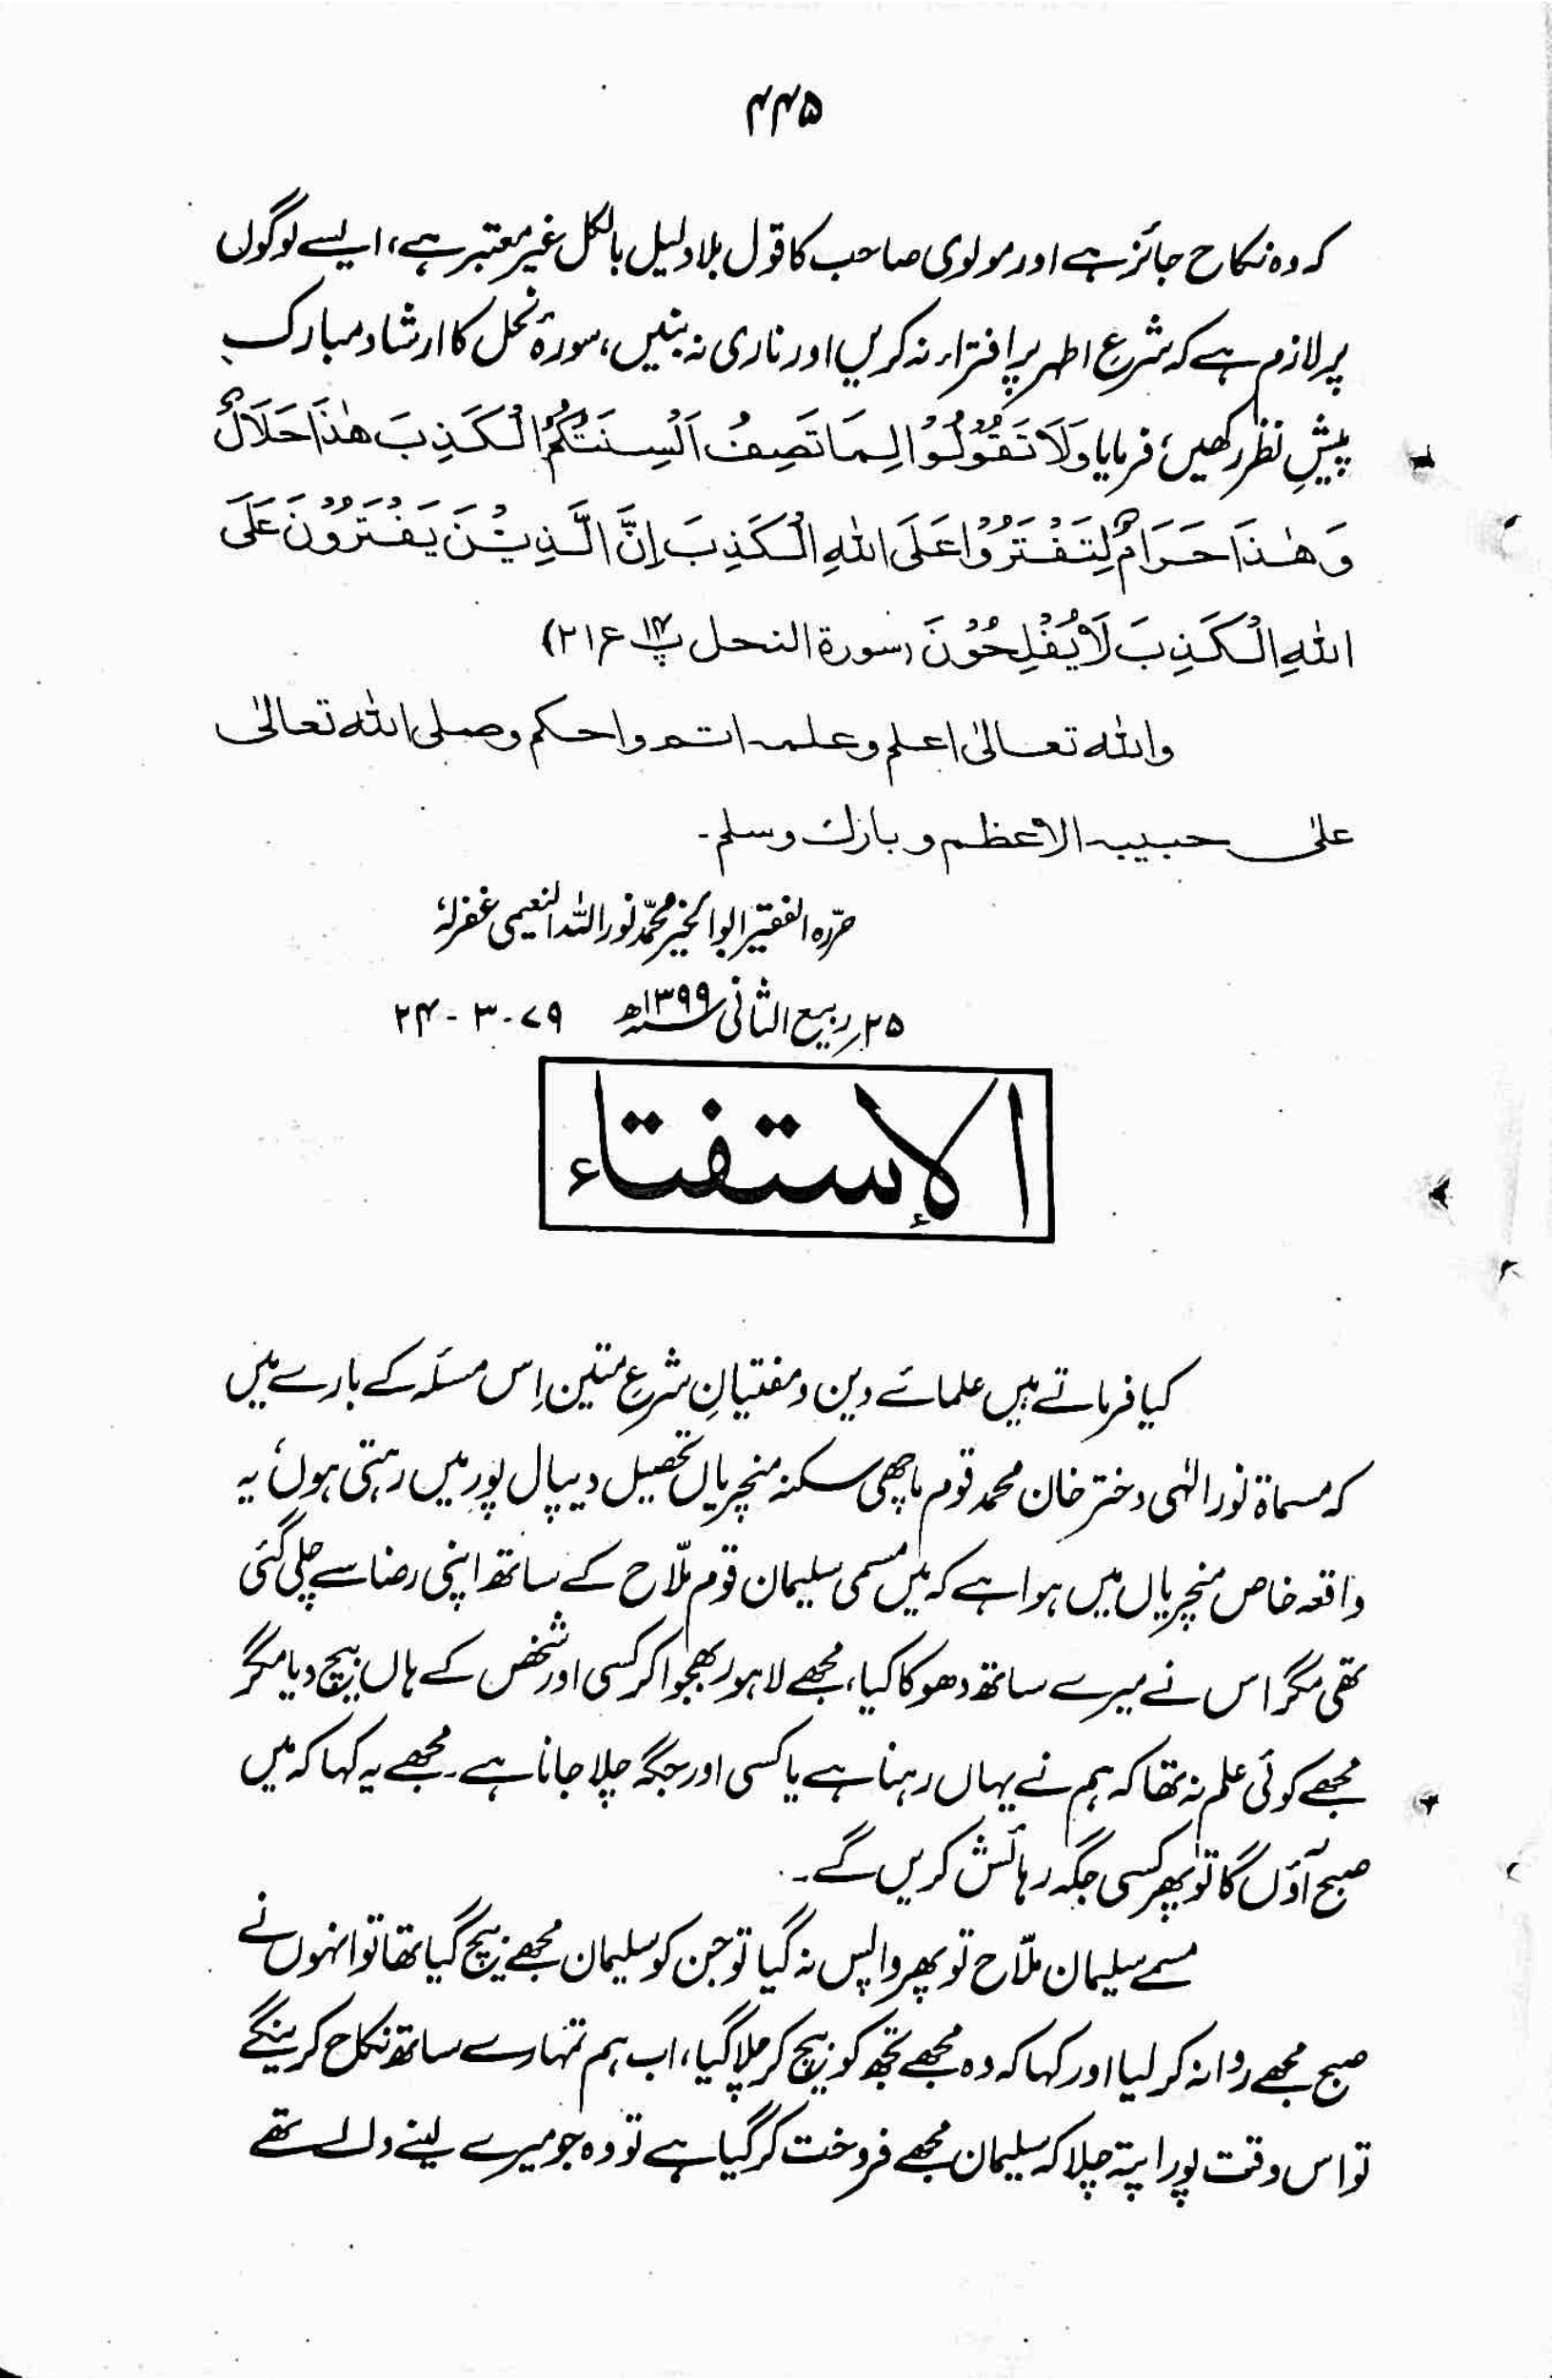 ۴۴۵
کہ وہ نکاح جائز ہے اور مولوی صاحب کا قول بلا دلیل بالکل غیر معتبر ہے، ایسے لوگوں
پر لازم ہے کہ شرعِ اطہر پر افتراء نہ کریں اور ناری نہ بنیں، سورۂ نحل کا ارشاد مبارک
پیشِ نظر رکھیں، فرمایا وَلَا تَقُوْلُوْا لِمَا تَصِفُ اَلْسِنَتُکُمُ الْکَذِبَ ھٰذَا حَلَالٌ
وَھٰذَا حَرَامٌ لِتَفْتَرُوْا عَلَی اللّٰہِ الْکَذِبَ اِنَّ الَّذِیْنَ یَفْتَرُوْنَ عَلَی
اللّٰہِ الْکَذِبَ لَا یُفْلِحُوْنَ (سورۃ النحل پ۱۴ ع۲۱)
واللّٰہ تعالیٰ اعلم وعلمہ اتم واحکم وصلی اللّٰہ تعالیٰ
علیٰ حبیبہ الاعظم وبارک وسلم۔
حررہ الفقیر ابوالخیر محمّد نور اللّٰہ النعیمی غفرلہٗ
۲۵ ربیع الثانی ۱۳۹۹ھ ۷۹-۳-۲۴
الإستفتاء
کیا فرماتے ہیں علمائے دین و مفتیانِ شرعِ متین اِس مسئلہ کے بارے میں
کہ مسماۃ نور الٰہی دختر خان محمد قوم ماچھی سکنہ منچریاں تحصیل دیپال پور میں رہتی ہوں، یہ
واقعہ خاص منچریاں میں ہوا ہے کہ میں مسمی سلیمان قوم ملّاح کے ساتھ اپنی رضا سے چلی گئی
تھی مگر اس نے میرے ساتھ دھوکا کیا، مجھے لاہور بھجوا کر کسی اور شخص کے ہاں بیچ دیا مگر
مجھے کوئی علم نہ تھا کہ ہم نے یہاں رہنا ہے یا کسی اور جگہ چلا جانا ہے۔ مجھے یہ کہا کہ میں
صبح آؤں گا تو پھر کسی جگہ رہائش کریں گے۔
مسمے سلیمان ملّاح تو پھر واپس نہ گیا تو جن کو سلیمان مجھے بیچ گیا تھا تو انہوں نے
صبح مجھے روانہ کر لیا اور کہا کہ وہ مجھے تجھ کو بیچ کر چلا گیا، اب ہم تمہارے ساتھ نکاح کرینگے
تو اس وقت پورا پتہ چلا کہ سلیمان مجھے فروخت کر گیا ہے تو وہ جو میرے لینے والے تھے